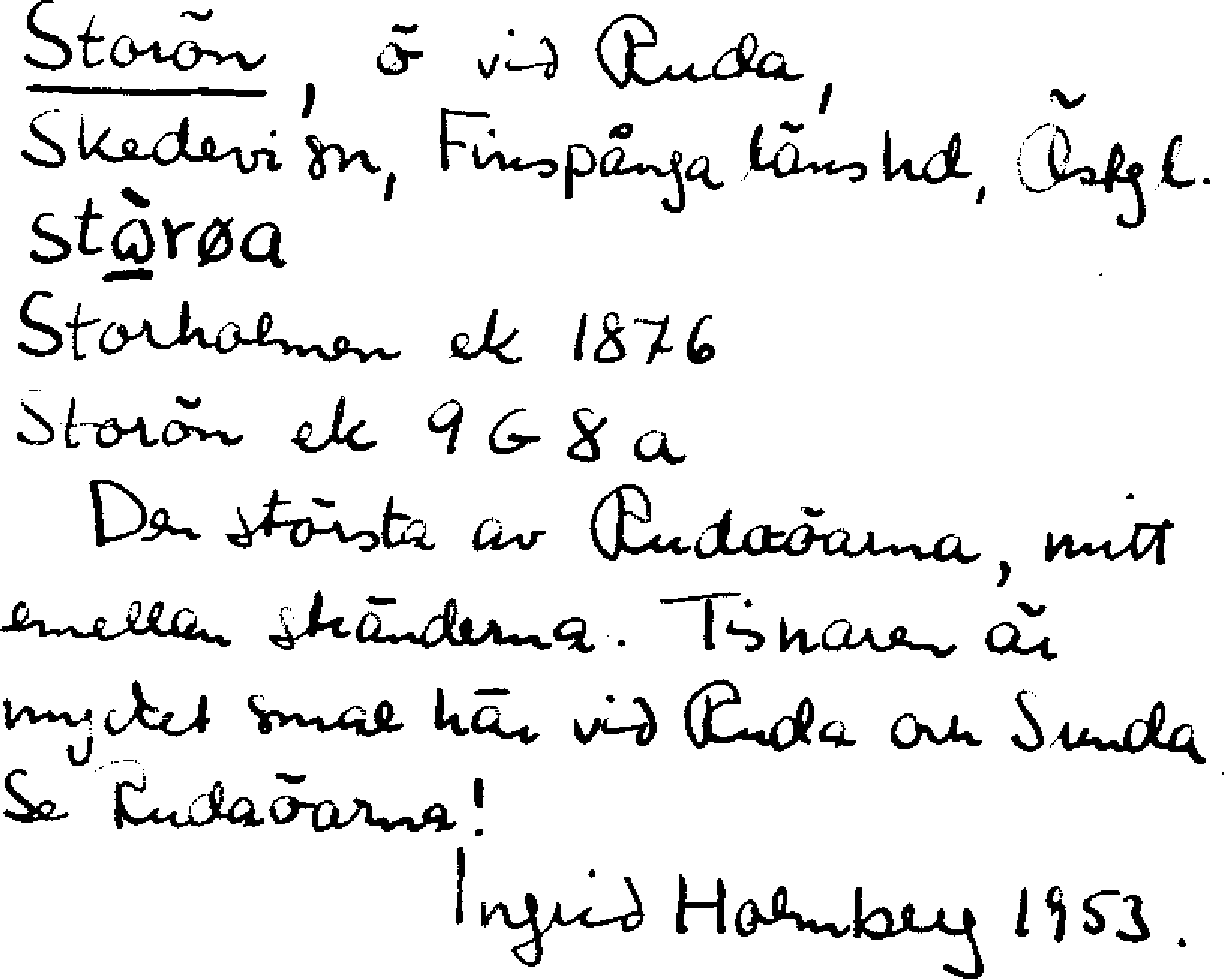 Storön, ö vid Ruda,
Skedevi sn, Finspånga länshd, Östgl.
stὼ̲røa
Storholmen ek 1876
Storön ek 9 G 8 a
Den största av Rudaöarna, mitt
emellan stränderna. Tisnaren är
mycket smal här vid Ruda och Sunda.
Se Rudaöarna!
Ingrid Holmberg 1953.